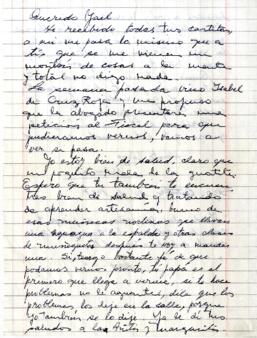 Querido Yael
He recibido todas tus cartitas
a mi me pasa lo mismo que a
tí que se me vienen un
montón de cosas a la mente
y total no digo nada.
La semana pasada vino Isabel
de Cruz Roja y me propuso
que la abogado presentara una
petición al Fiscal para que
pudieramos vernos, vamos a
ver si pasa.
Yo estoy bien de salud, claro que
un poquito
Espero que tu tambien te encuen
tres bien de salud y tratando
de aprender artesania, bueno de
esas muñecas nortinas que llevan
una guagua a la espalda y otras clases
de muñequitos después te voy a mandar
una. Si, tengo bastante fé de que
podamos vernos pronto, tu papá es el
primero que llega a verme, si te hace
problemas no le aguantes, dile que los
problemas los deje en la calle, porque
yo también se lo dije. Ya le di tus
saludos a las y Margarita